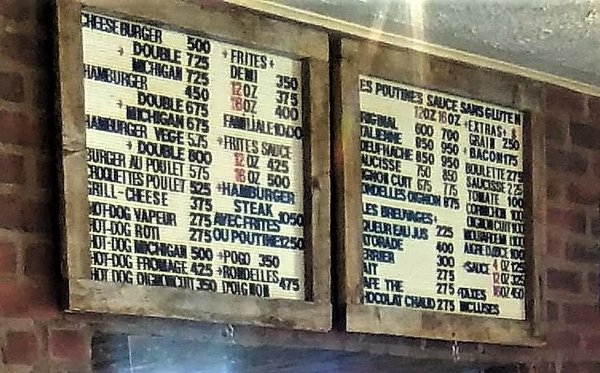 CHEESEBURGER 500
+ DOUBLE 725
MICHIGAN 725
HAMBURGER 450
+ DOUBLE 675
MICHIGAN 675
HAMBURGER VEGE 575
+ DOUBLE 800
BURGER AU POULET 575
CROQUETTES POULET 525
GRILL-CHEESE 375
HOT-DOG VAPEUR 275
HOT-DOG ROTI 275
HOT-DOG MICHIGAN 500
HOT-DOG FROMAGE 425
HOT DOG OIGNON CUIT 350
+FRITES+
DEMI 350
12OZ 375
16OZ 400
FAMILIALE 1000
+FRITES SAUCE
12 OZ 425
16 OZ 500
+HAMBURGER
STEAK 1050
AVEC FRITES
OU POUTINE 1250
+POGO 350
+RONDELLES 475
D'OIGNON
ES POUTINES SAUCE SANS GLUTEN
12OZ 16OZ
ORIGINAL 600 700
ITALIENNE 850 950
850 950
SAUCISSE 750 850
OIGNON CUIT 675 775
RONDELLES OIGNON 875
LES BREUVAGES+
LIQUEUR EAU JUS 225
GATORADE 400
PERRIER 300
LAIT 275
CAFE THE 275
CHOCOLAT CHAUD 275
+EXTRAS+
GRAIN 250
+BACON 175
BOULETTE 275
SAUCISSE 225
TOMATE 100
CORNICHON 100
OIGNON CUIT 100
100
100
+SAUCE 4 OZ 125
12 OZ 325
16 OZ 450
+TAXES
INCLUSES